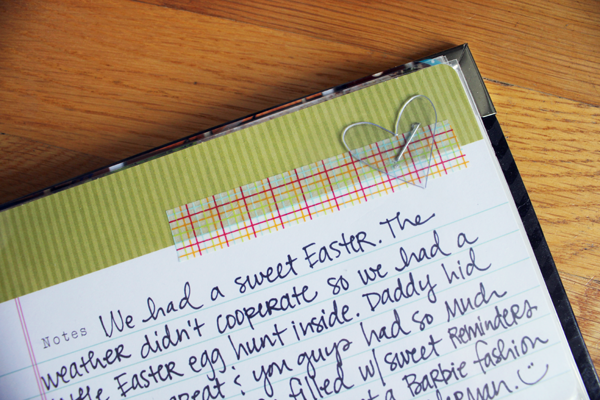 Notes We had a sweet Easter. The
weather didn't cooperate so we had a
Easter egg hunt inside. Daddy hid
& you guys had so much
filled w/ sweet Reminders
a Barbie fashion